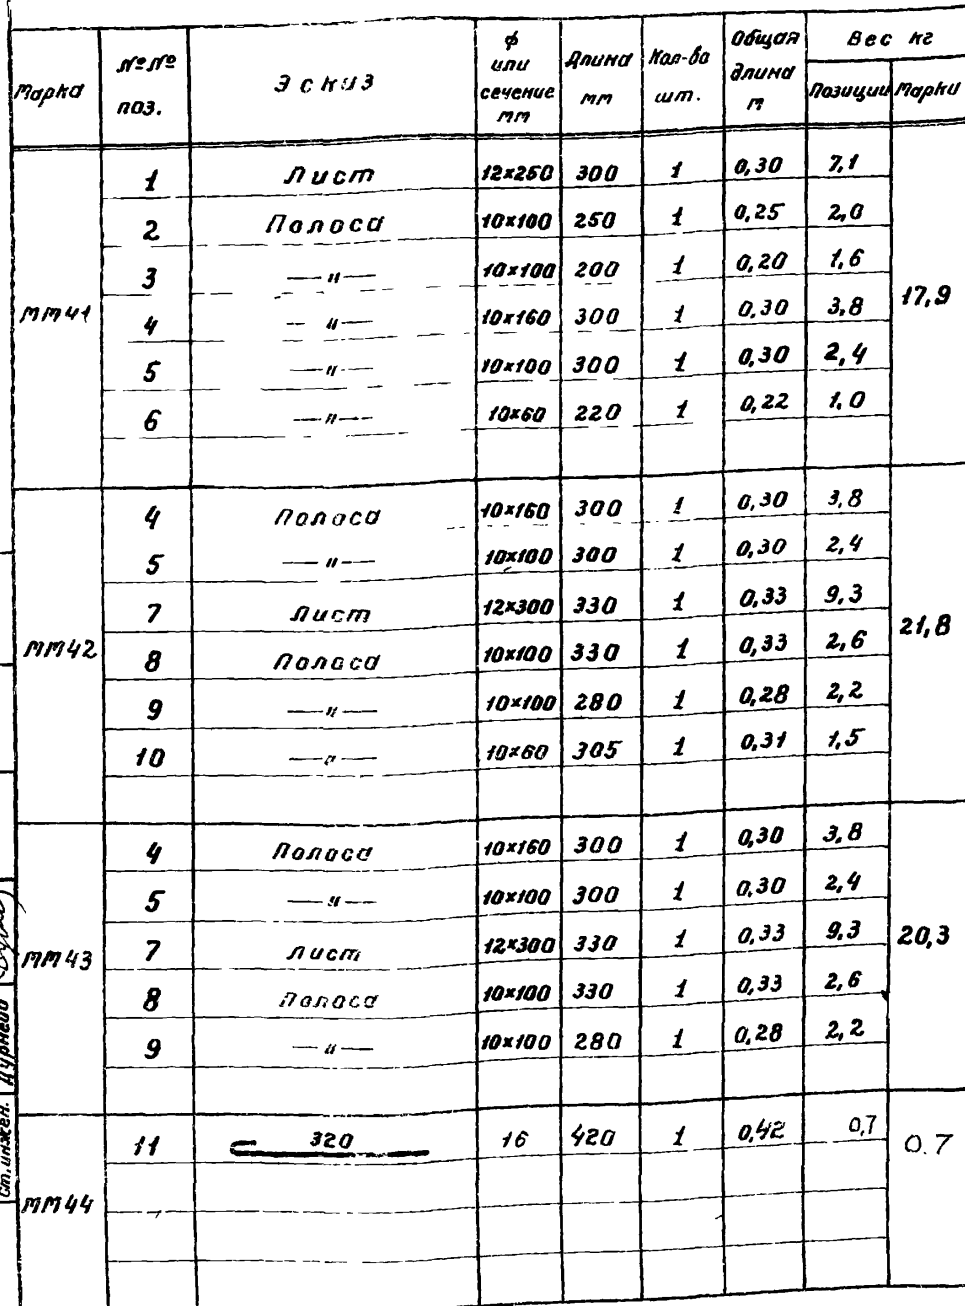 Марка №№ поз. Эскиз ф или сечение мм Длина мм Кол-во шт. Общая длина м Вес кг
Позиции Марки
1 Лист 12×250 300 1 0,30 7,1
2 Полоса 10×100 250 1 0,25 2,0
3 —〃— 10×100 200 1 0,20 1,6
ММ41 17,9
4 —〃— 10×160 300 1 0,30 3,8
5 —〃— 10×100 300 1 0,30 2,4
6 —〃— 10×60 220 1 0,22 1,0
4 Полоса 10×160 300 1 0,30 3,8
5 —〃— 10×100 300 1 0,30 2,4
7 Лист 12×300 330 1 0,33 9,3
ММ42 21,8
8 Полоса 10×100 330 1 0,33 2,6
9 —〃— 10×100 280 1 0,28 2,2
10 —〃— 10×60 305 1 0,31 1,5
4 Полоса 10×160 300 1 0,30 3,8
5 —〃— 10×100 300 1 0,30 2,4
7 Лист 12×300 330 1 0,33 9,3
ММ43 20,3
8 Полоса 10×100 330 1 0,33 2,6
9 —〃— 10×100 280 1 0,28 2,2
11 320 16 420 1 0,42 0,7 0.7
ММ44
Ст. инжен.